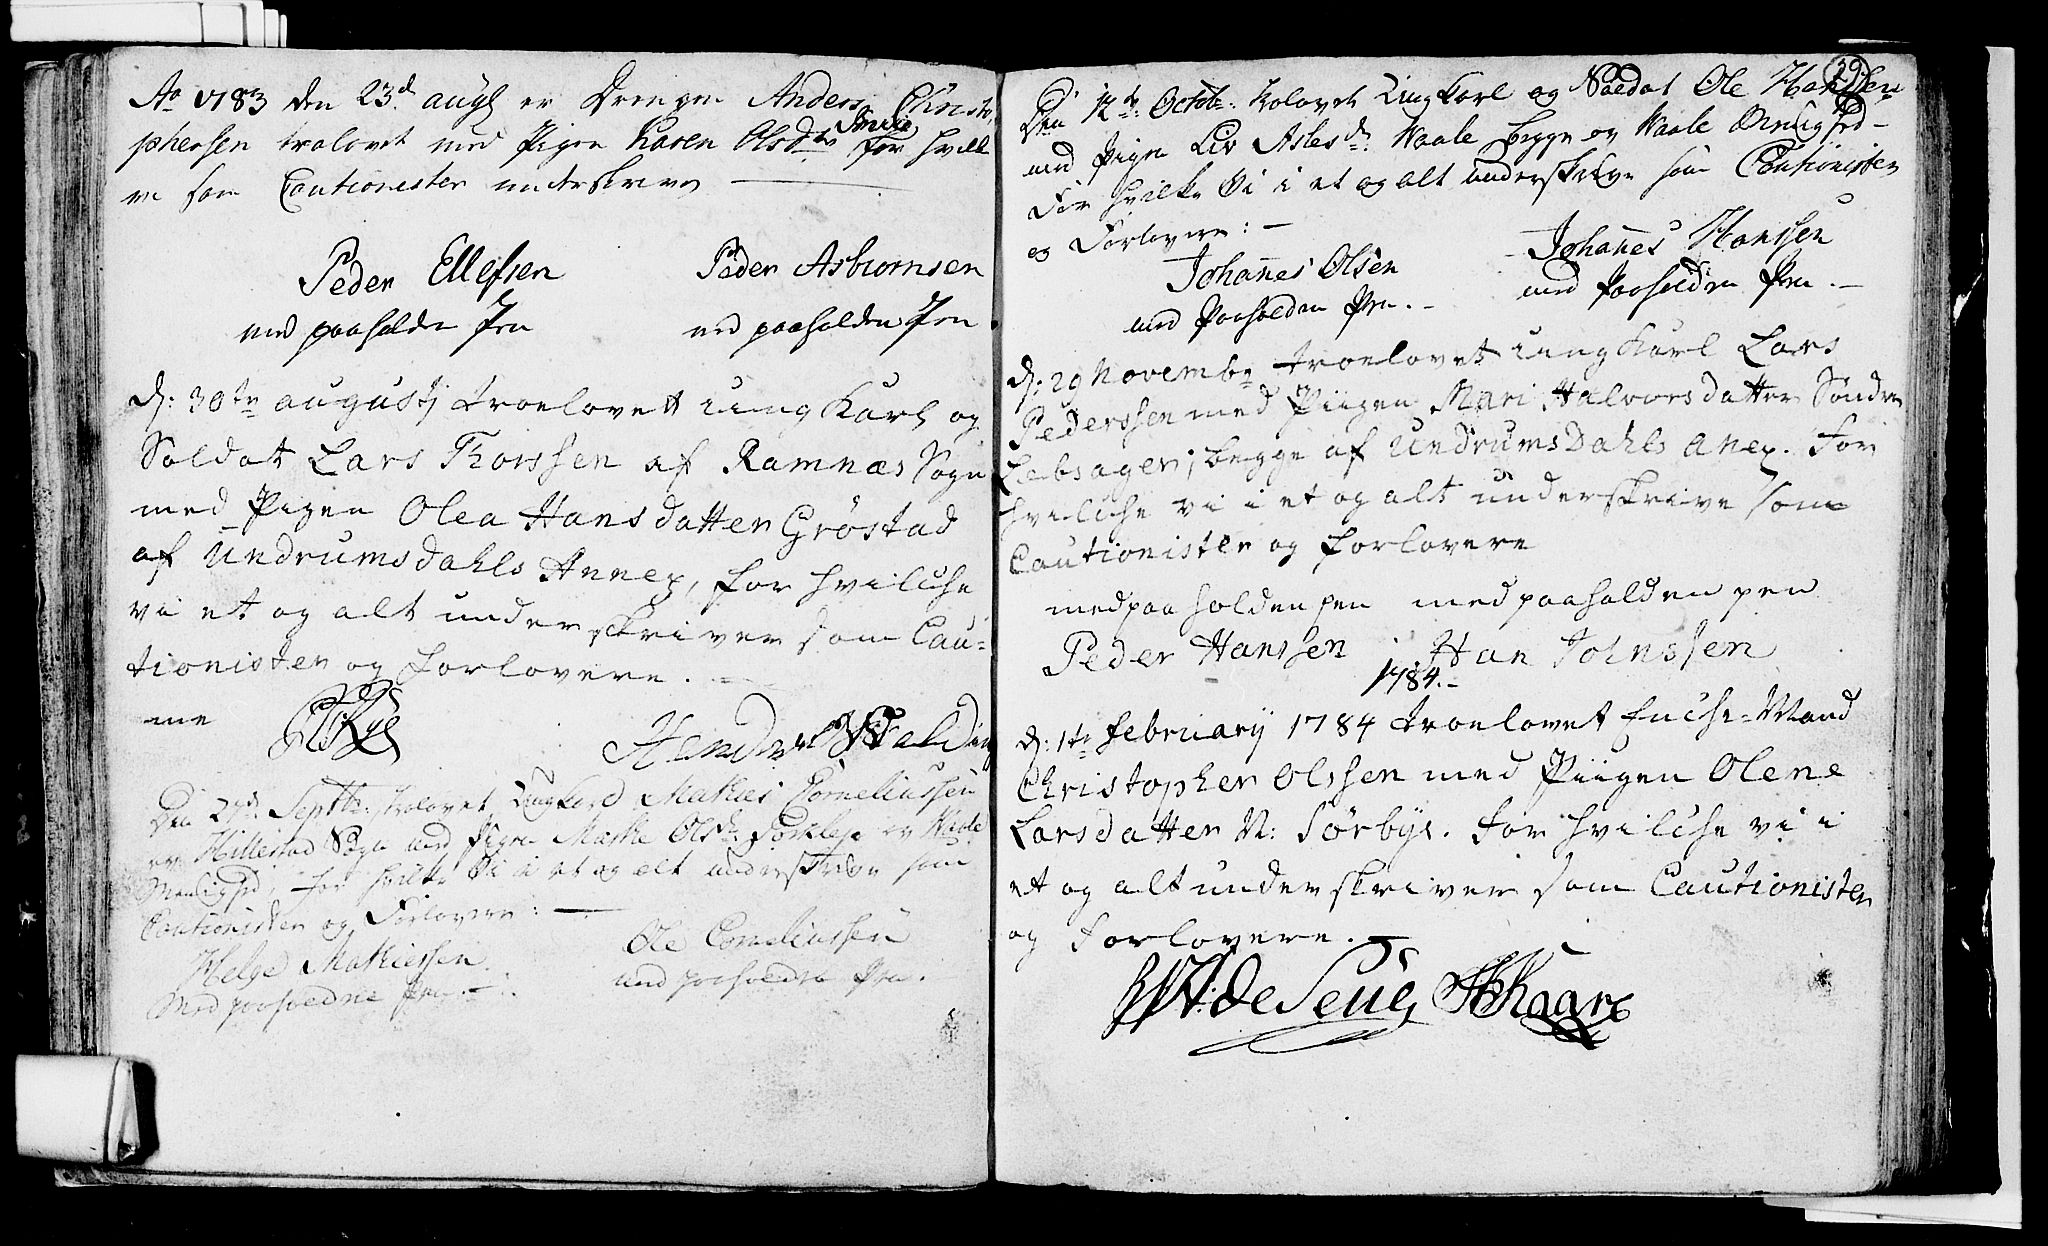 Ao 1783 den 23d augs er Drengen Anders Christo-
phersen trolovet med Pigen Karen Olsdtr Smrie for hvilk
vi som Cautionister underskriver
Peder Ellefsen Peder Asbiornsen
med paaholden Pen med paaholden Pen
d: 30te augustj troelovet ung Karl og
Soldat Lars Thorssen af Ramnæs Sogn
med Pigen Olea Hansdatter Gröstad
af Undrumsdahls Annex, for hvilche
vi et og alt underskriver som Cau-
tionister og forlovere.
me
Den 27d Septbr: trolovet Ungkarl Mathies Corneliussen
Hillestad Sogn med Pigen Marthe Olsdr. er Vaale
Menighed, for hvilke Vi i et og alt underskrive som
Cautionister og Forlovere:
Helge Mathiessen Ole Corneliussen
Med paaholdne Pen. med paaholden Pen.
39
Den 12te Octobr: trolovet Ungkarl og Soldat Ole Hanssen
med Pigen Liv Aslesdr. Vaale begge og Vaale Menighed
For hvilke Vi i et og alt underskrive som Cautionister
og Forlovere:
Johanes Olsen Johanes Hanssen
med Paaholden Pen. med Paaholden Pen.
d: 29 Novembr troelovet ung Karl Lars
Pederssen med Piigen Mari Halvorsdatter Söndre
begge af Undrumsdahls anex. for
hvilche vi i et og alt underskrive som
Cautionister og forlovere
med paaholden pen med paaholden pen
Peder Hanssen Han Johnssen
1784.
d: 1te februarij 1784 troelovet Enche-Mand
Christopher Olssen med Piigen Olene
Larsdatter N: Sörbye. for hvilche vi i
et og alt underskriver som Cautionister
og Forlovere.
de Seue Skaare